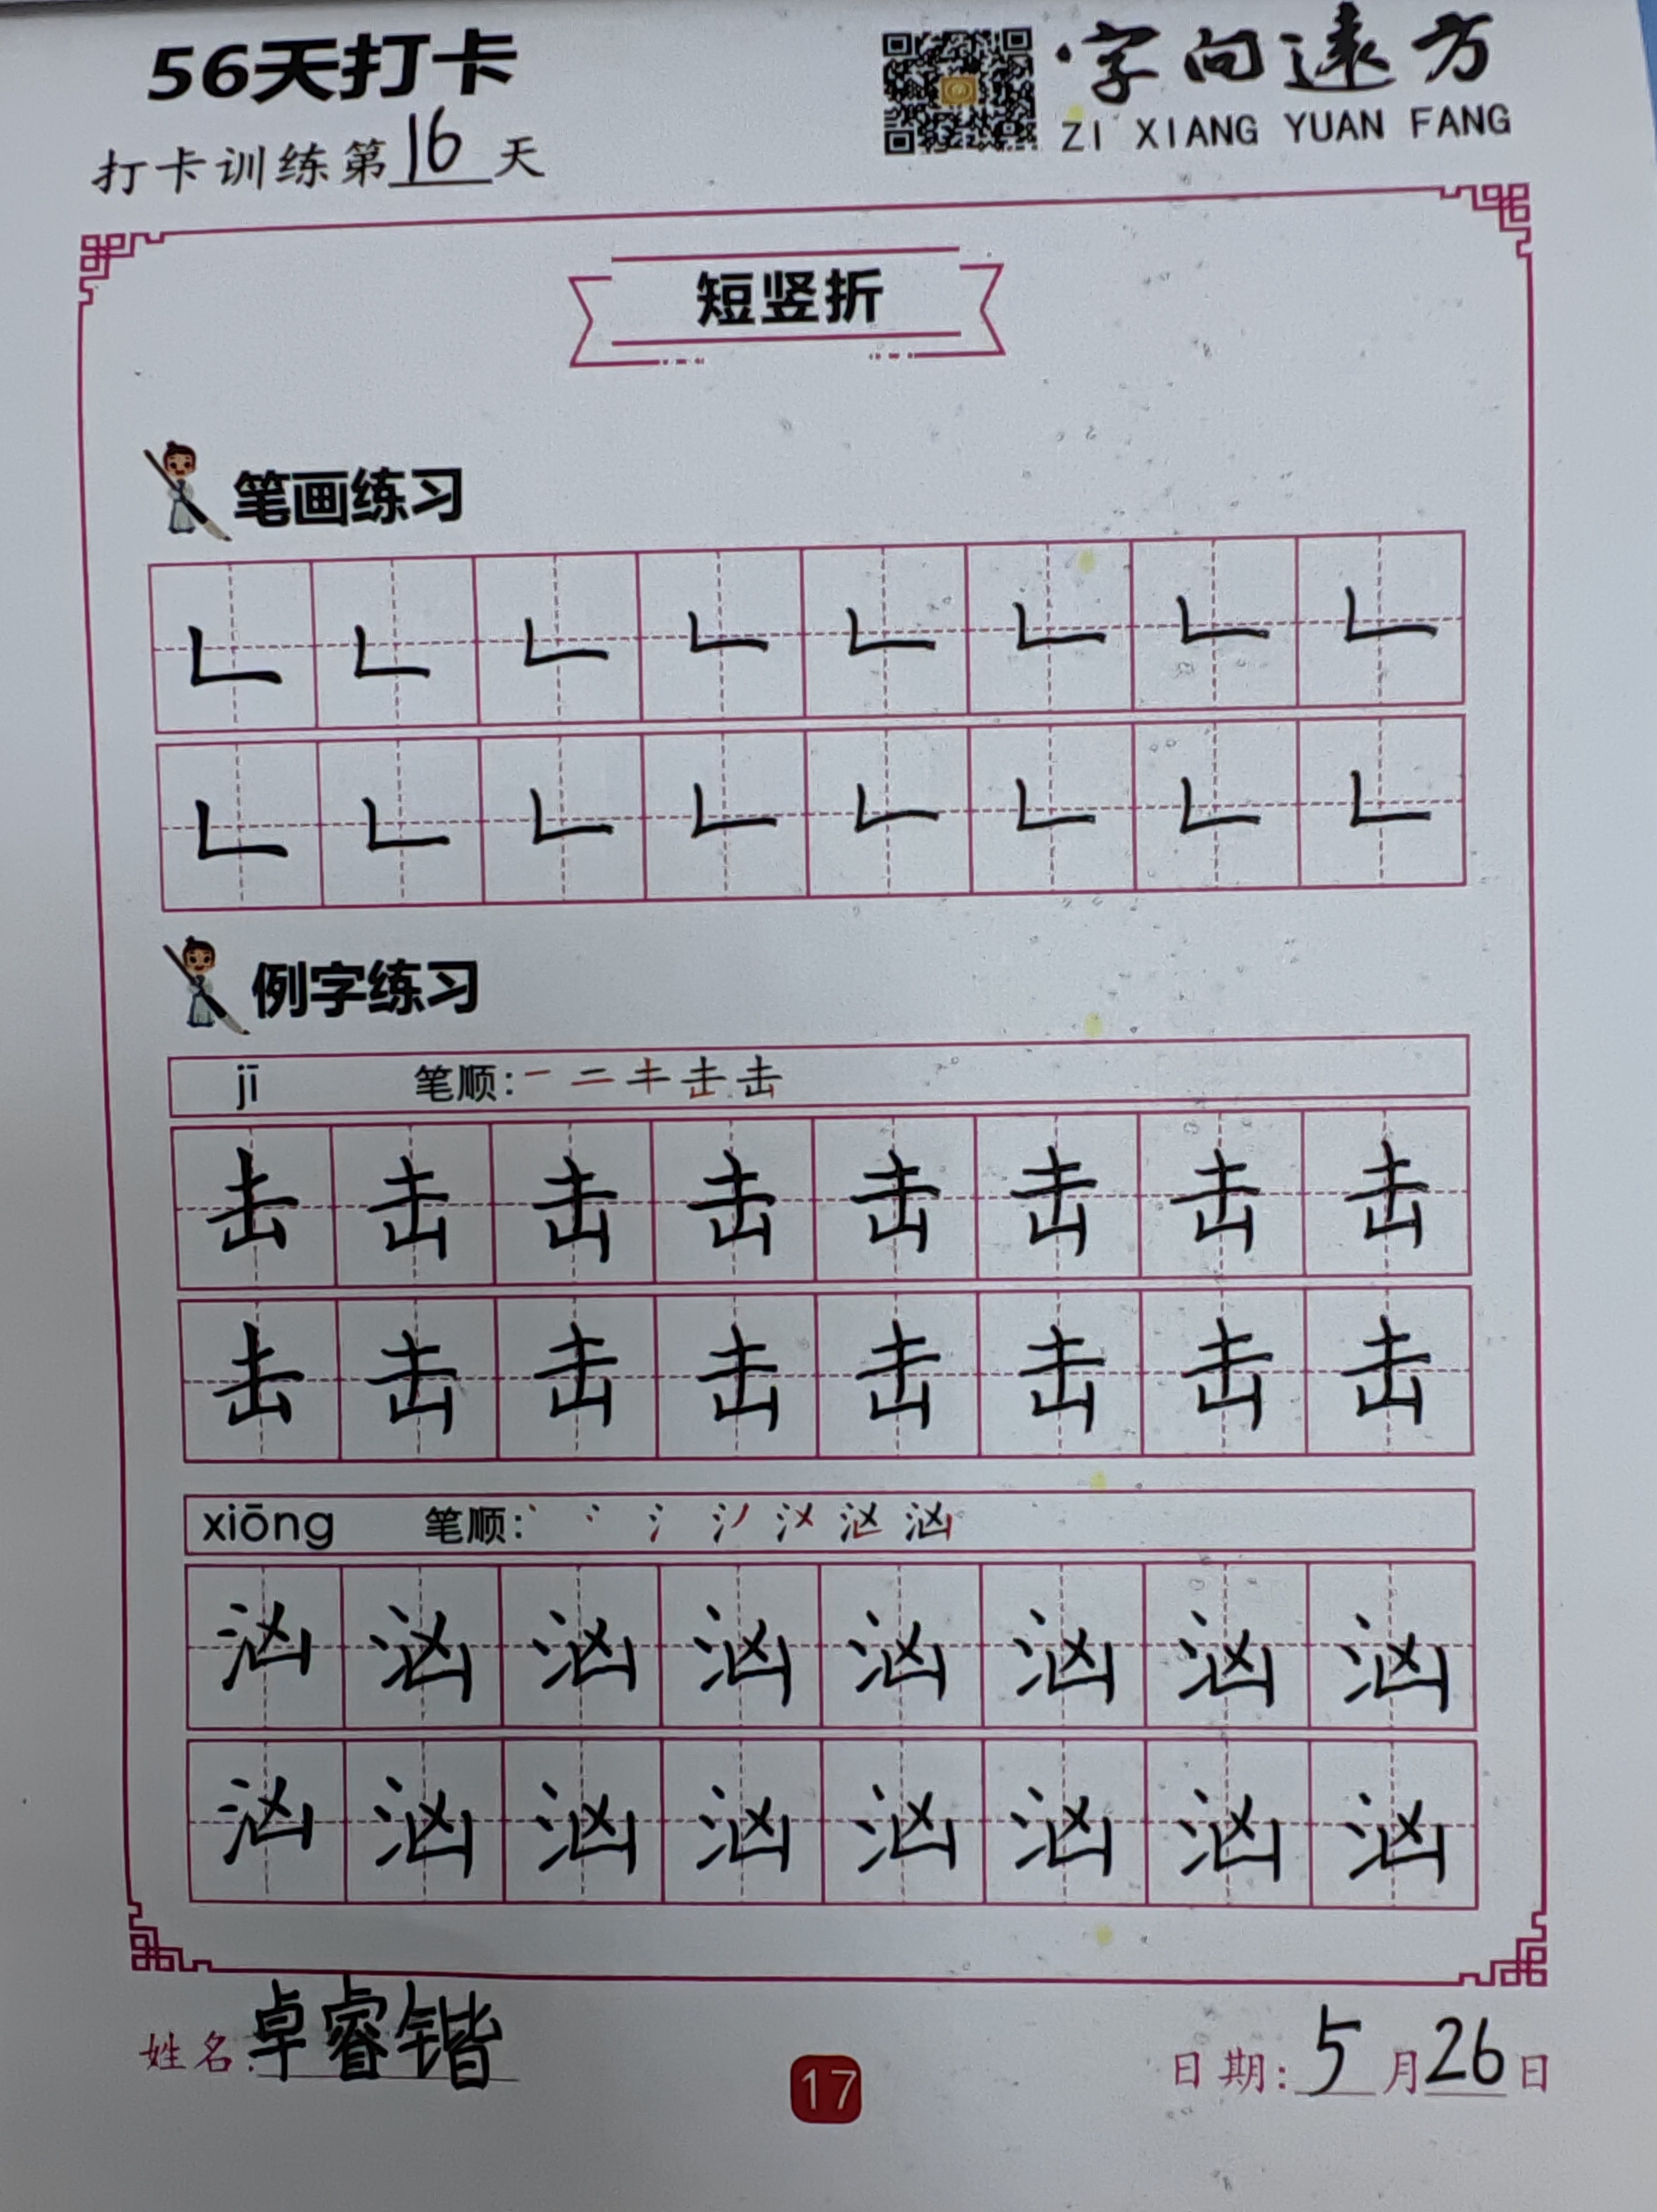 56天打卡
打卡训练第16天
·字向远方
ZI XIANG YUAN FANG
短竖折
笔画练习
𠃊 𠃊 𠃊 𠃊 𠃊 𠃊 𠃊 𠃊
𠃊 𠃊 𠃊 𠃊 𠃊 𠃊 𠃊 𠃊
例字练习
jī 笔顺:
击 击 击 击 击 击 击 击
击 击 击 击 击 击 击 击
xiōng 笔顺:
汹 汹 汹 汹 汹 汹 汹 汹
汹 汹 汹 汹 汹 汹 汹 汹
姓名:卓睿锴
17
日期:5月26日